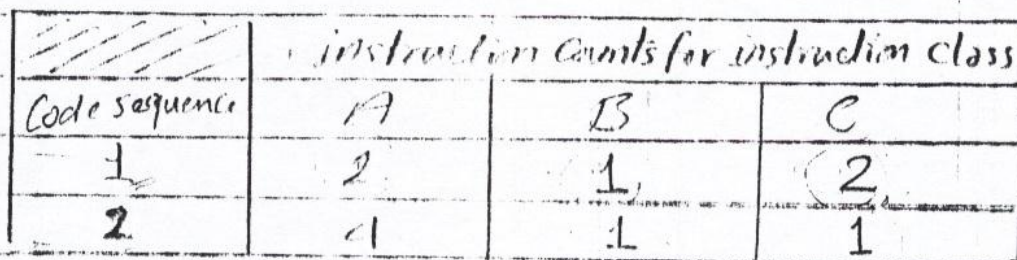 instruction Counts for instruction Class
Code sesquence A B C
1 2 1 2
2 4 1 1